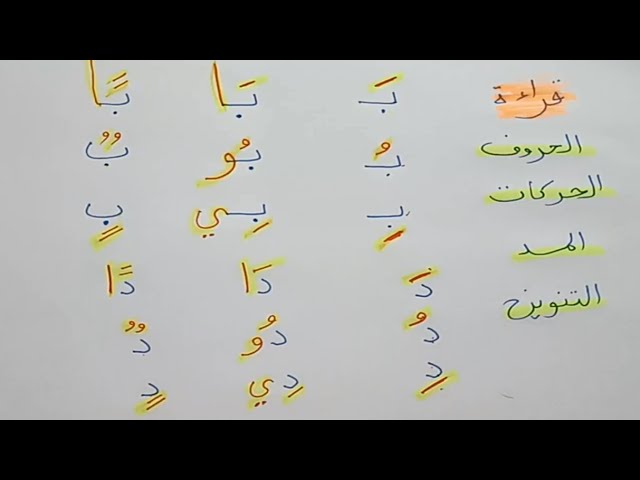 قراءة
الحروف
الحركات
المد
التنوين
بَ بَا بًا
بُ بُو بٌ
بِ بِي بٍ
دَ دَا دًا
دُ دُو دٌ
دِ دِي دٍ